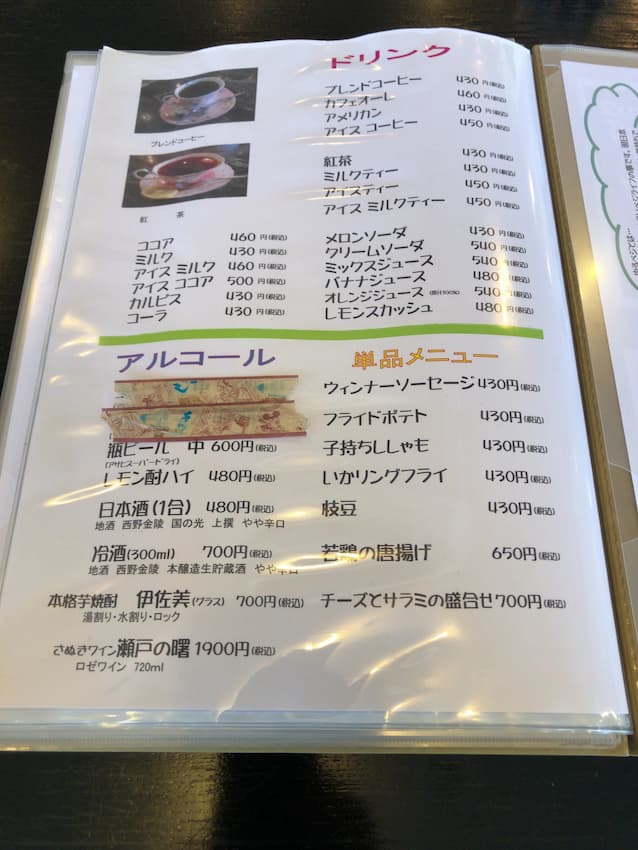 ドリンク
ブレンドコーヒー 430円(税込)
カフェオーレ 460円(税込)
アメリカン 430円(税込)
アイス コーヒー 450円(税込)
ブレンドコーヒー
紅茶 430円(税込)
ミルクティー 430円(税込)
アイスティー 450円(税込)
アイス ミルクティー 450円(税込)
紅 茶
ココア 460円(税込)
ミルク 430円(税込)
アイス ミルク 460円(税込)
アイス ココア 500円(税込)
カルピス 430円(税込)
コーラ 430円(税込)
メロンソーダ 430円(税込)
クリームソーダ 540円(税込)
ミックスジュース 540円(税込)
バナナジュース 480円(税込)
オレンジジュース(果汁100%) 540円(税込)
レモンスカッシュ 480円(税込)
アルコール
瓶ビール 中 600円(税込)
(アサヒスーパードライ)
レモン酎ハイ 480円(税込)
日本酒(1合) 480円(税込)
地酒 西野金陵 国の光 上撰 やや辛口
冷酒(300ml) 700円(税込)
地酒 西野金陵 本醸造生貯蔵酒 やや辛口
本格芋焼酎 伊佐美(グラス) 700円(税込)
湯割り・水割り・ロック
さぬきワイン瀬戸の曙 1900円(税込)
ロゼワイン 720ml
単品メニュー
ウィンナーソーセージ430円(税込)
フライドポテト 430円(税込)
子持ちししゃも 430円(税込)
いかリングフライ 430円(税込)
枝豆 430円(税込)
若鶏の唐揚げ 650円(税込)
チーズとサラミの盛合せ700円(税込)